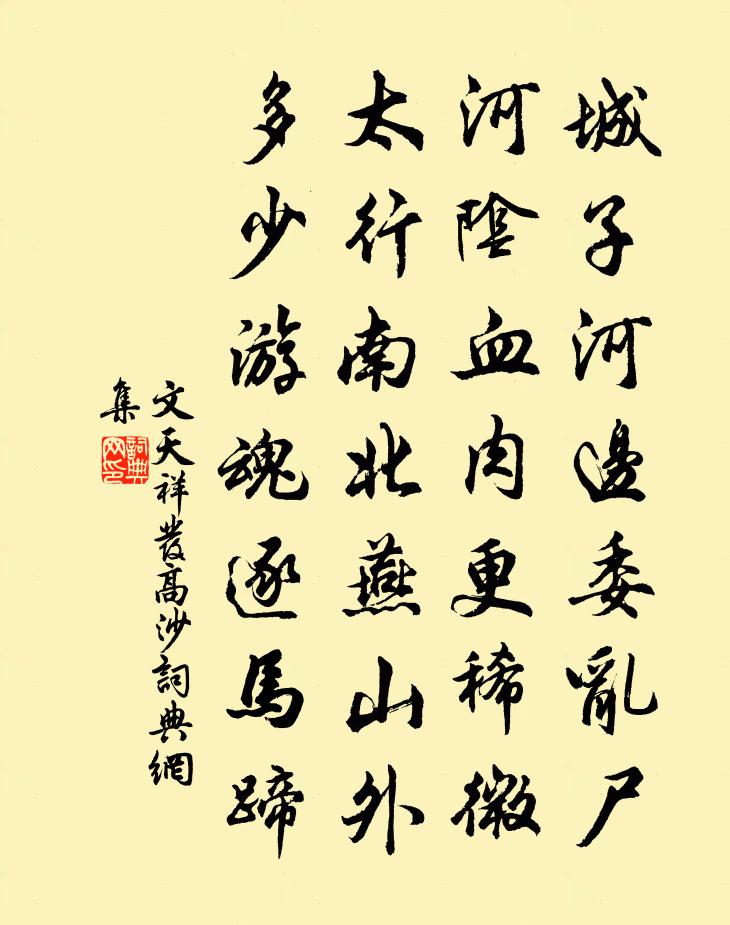 城子河邊委亂尸
河陰血肉更稀微
太行南北燕山外
多少游魂逐馬蹄
文天祥發高沙詞典網
集
詞典网印